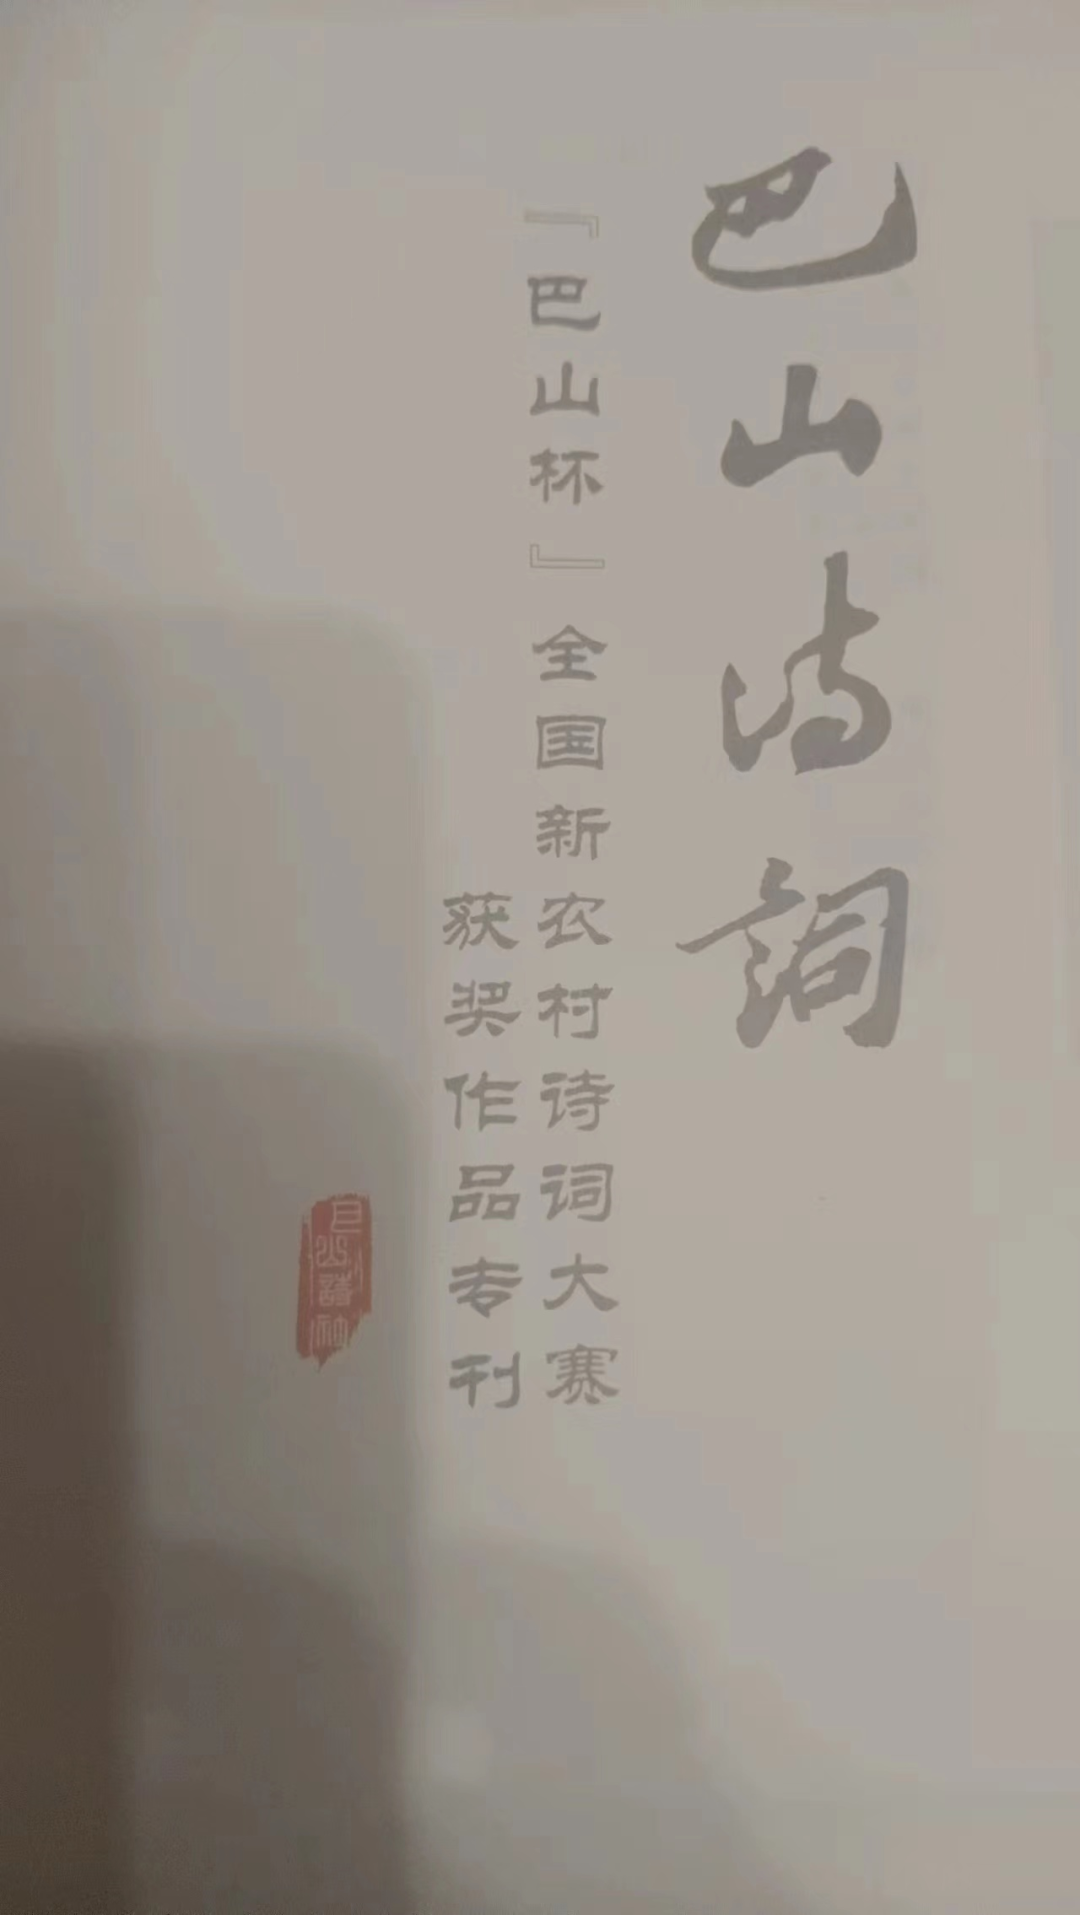 巴山诗詞
『巴山杯』全国新农村诗词大赛
获奖作品专刊